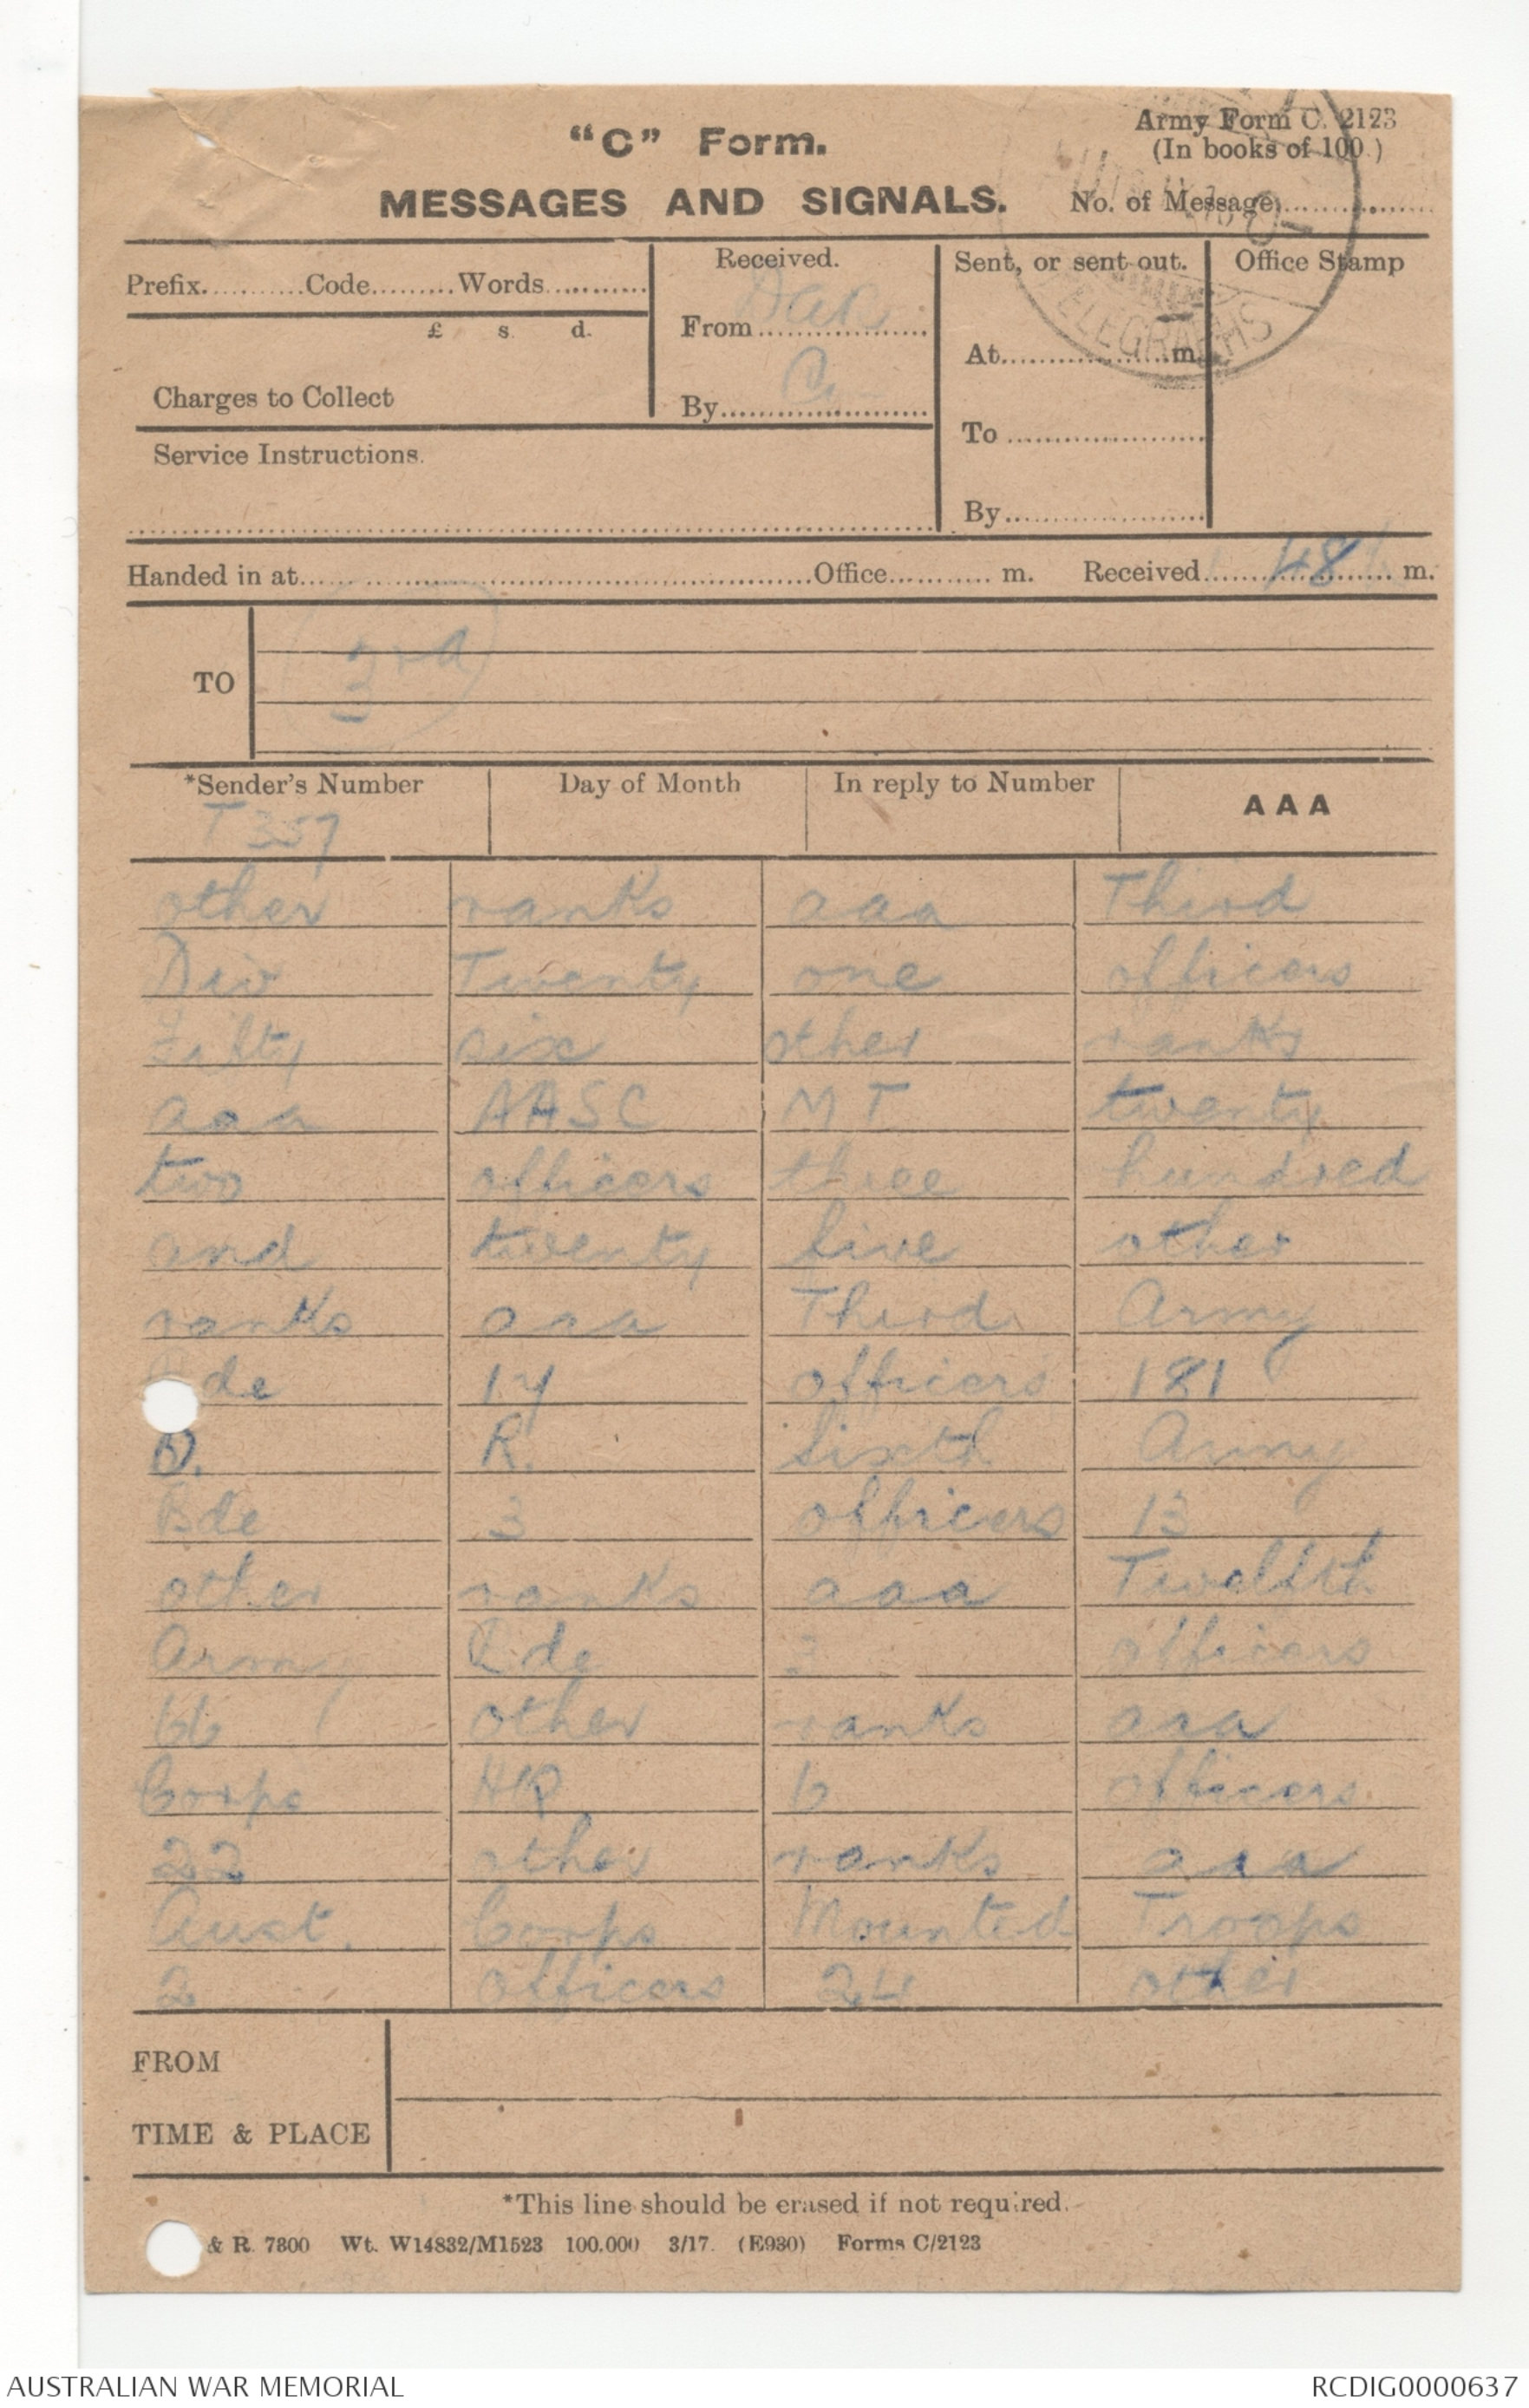 "C" Form.
Army Form C. 2123
(In books of 100.)
MESSAGES AND SIGNALS.
No. of Message
Prefix Code Words
Received.
Sent, or sent out.
Office Stamp
£ s. d.
From
At m.
Charges to Collect
By
To
Service Instructions.
By
TELEGRAPHS
Handed in at Office m. Received 48 m.
TO
3rd
*Sender's Number Day of Month In reply to Number AAA
T 357
other ranks aaa Third
Div Twenty one officers
Fifty six other ranks
aaa AASC MT twenty
two officers three hundred
and twenty five other
ranks aaa Third Army
de 14 officers 181
O. R. Sixth Army
Bde 3 officers 13
other ranks aaa Twelfth
Army Bde officers
66 other ranks aaa
Corps HQ 6 officers
22 other ranks aaa
Aust. Corps Mounted Troops
2 officers 24 other
FROM
TIME & PLACE
*This line should be erased if not required.
& R. 7300 Wt. W14832/M1523 100.000 3/17. (E930) Forms C/2123
AUSTRALIAN WAR MEMORIAL
RCDIG0000637